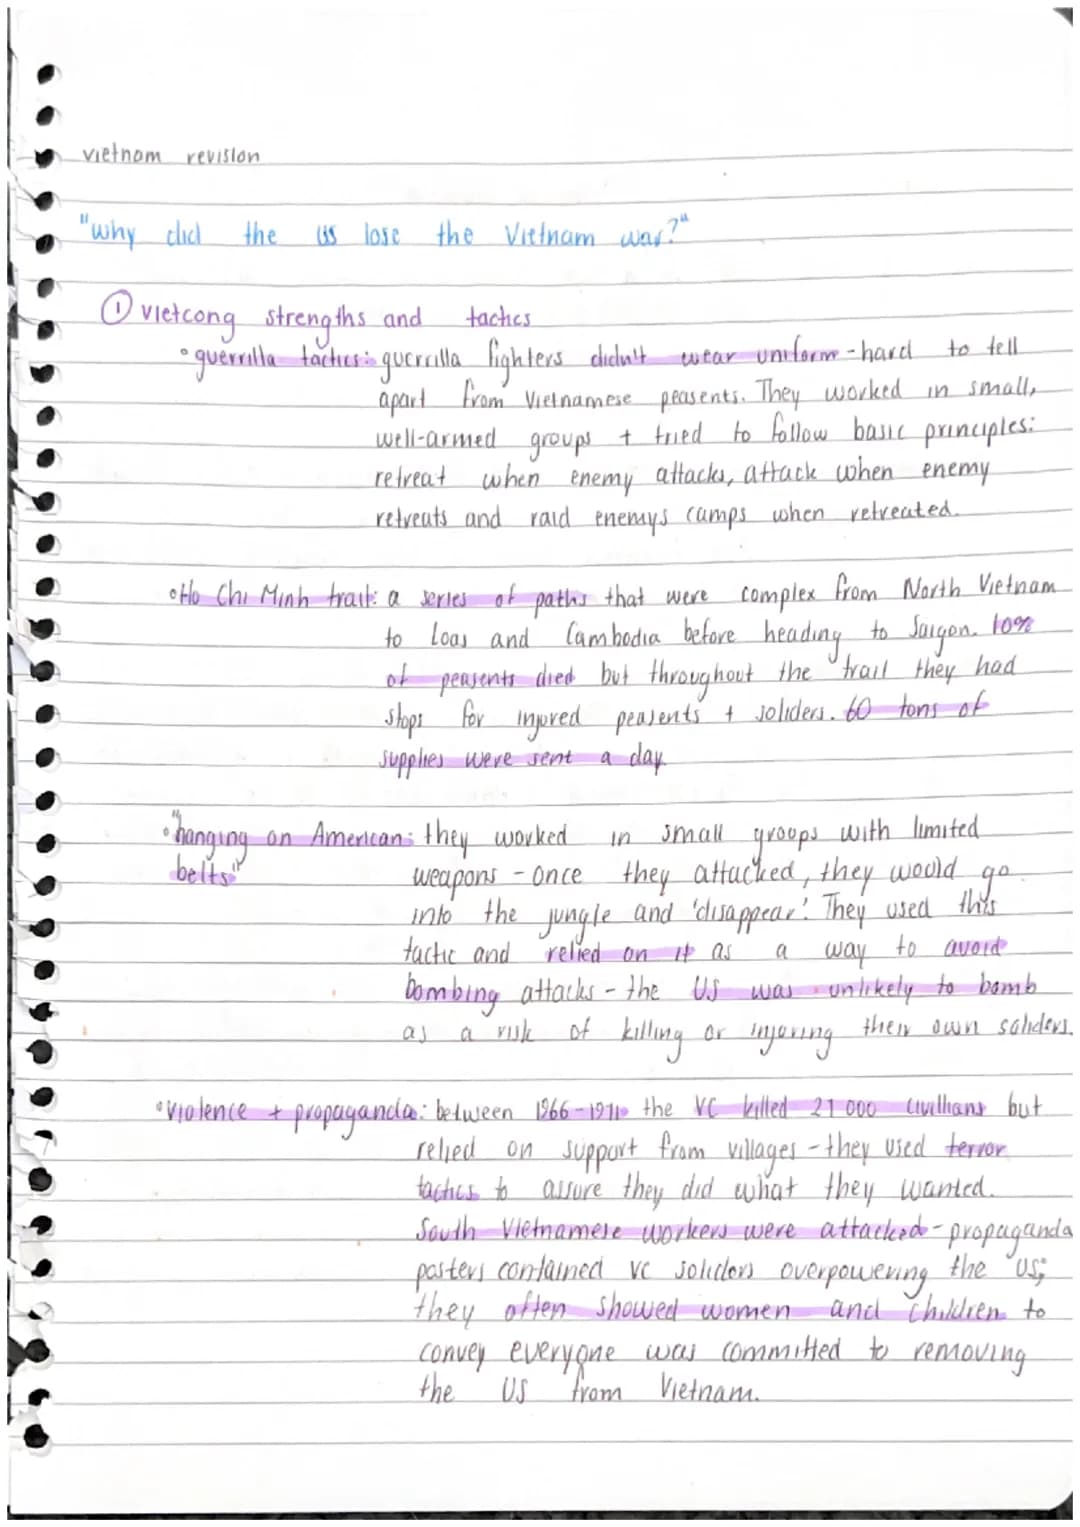 vietnam revision
"why did the us lose the Vietnam war?"
① vietcong strengths and tactics
• guerrilla tactics: guerrilla fighters didn't wear uniform - hard to tell
apart from Vietnamese peasents. They worked in small,
well-armed groups + tried to follow basic principles:
retreat when enemy attacks, attack when enemy
retreats and raid enemys camps when retreated.
• Ho Chi Minh trail: a series of paths that were complex from North Vietnam
to Loas and Cambodia before heading to Saigon. 10%
of peasents died but throughout the trail they had
stops for injured peasents + soliders. 60 tons of
supplies were sent a day.
• "hanging on American: they worked in small groups with limited
belts" weapons - once they attacked, they would go
into the jungle and 'disappear'. They used this
tactic and relied on it as a way to avoid
bombing attacks - the US was unlikely to bomb
as a risk of killing or injuring their own soliders.
• Violence + propaganda: between 1966-1971 the VC killed 27 000 civillians but
relied on support from villages - they used terror
tactics to assure they did what they wanted.
South Vietnamese workers were attacked - propaganda
posters contained VC soliders overpowering the US;
they often showed women and children to
convey everyone was committed to removing
the US from Vietnam.